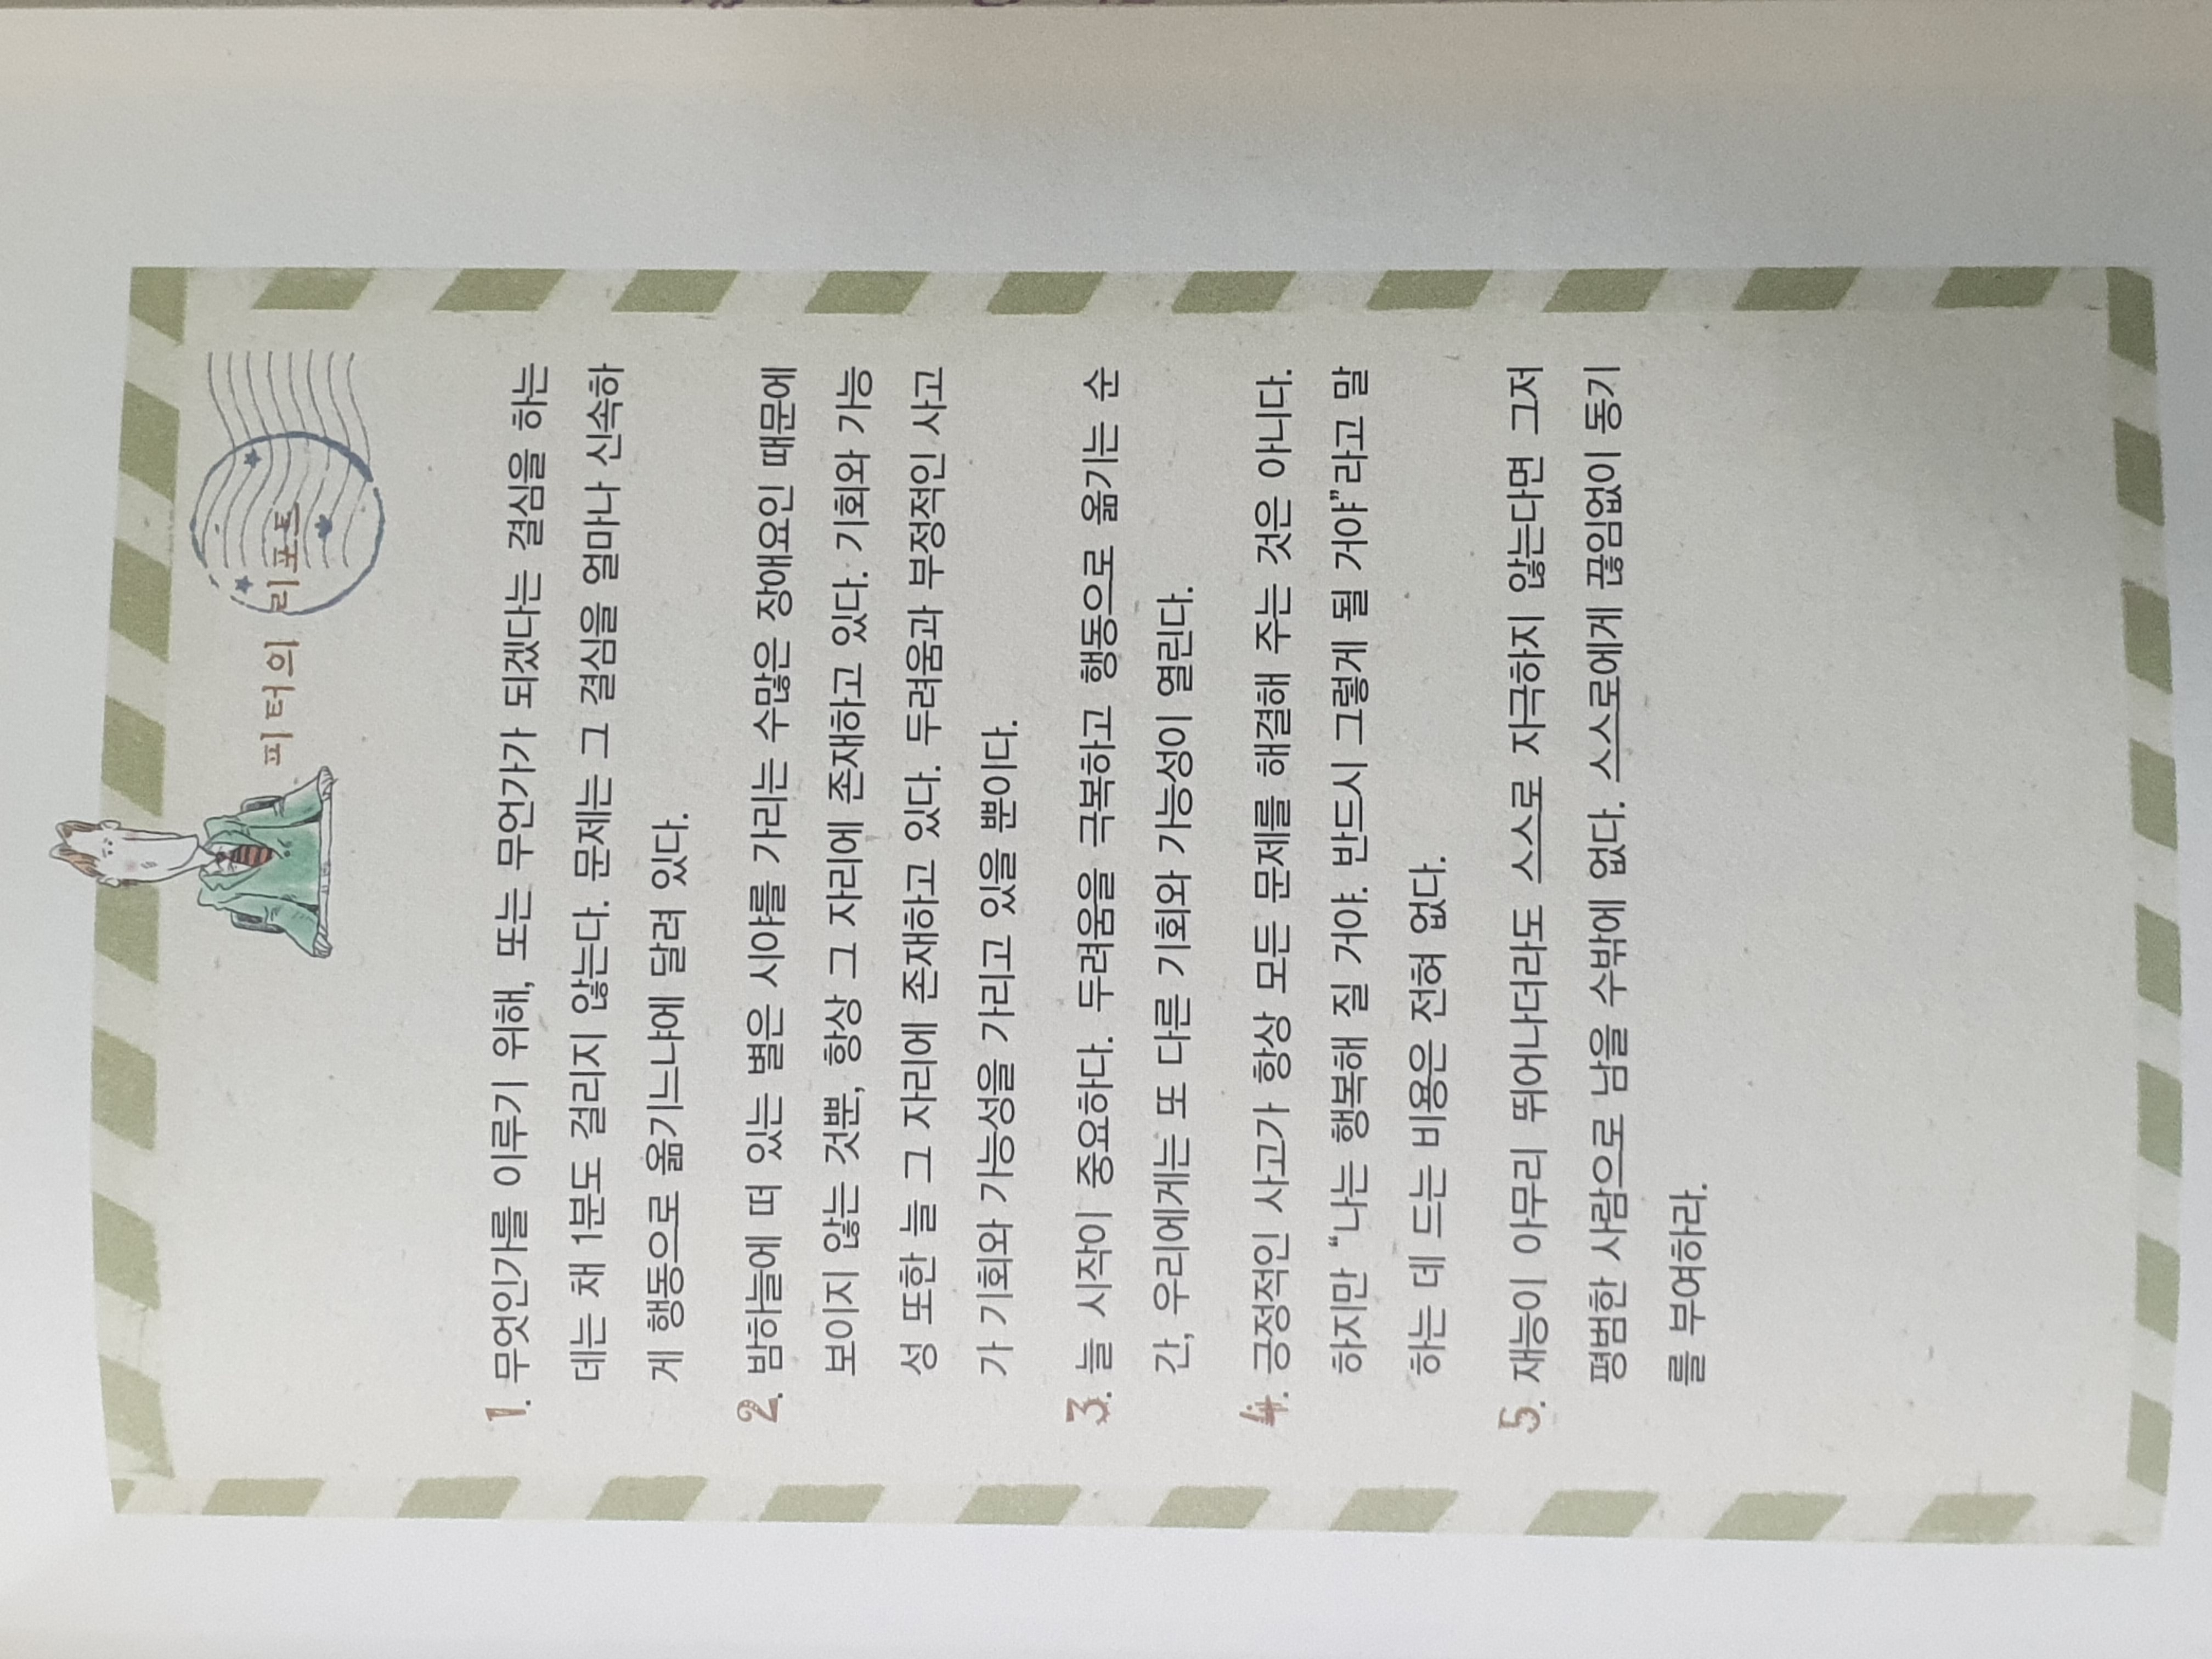 피터의 리포트
1. 무엇인가를 이루기 위해, 또는 무언가가 되겠다는 결심을 하는
데는 채 1분도 걸리지 않는다. 문제는 그 결심을 얼마나 신속하
게 행동으로 옮기느냐에 달려 있다.
2. 밤하늘에 떠 있는 별은 시야를 가리는 수많은 장애요인 때문에
보이지 않는 것뿐, 항상 그 자리에 존재하고 있다. 기회와 가능
성 또한 늘 그 자리에 존재하고 있다. 두려움과 부정적인 사고
가 기회와 가능성을 가리고 있을 뿐이다.
3. 늘 시작이 중요하다. 두려움을 극복하고 행동으로 옮기는 순
간, 우리에게는 또 다른 기회와 가능성이 열린다.
4. 긍정적인 사고가 항상 모든 문제를 해결해 주는 것은 아니다.
하지만 “나는 행복해 질 거야. 반드시 그렇게 될 거야”라고 말
하는 데 드는 비용은 전혀 없다.
5. 재능이 아무리 뛰어나더라도 스스로 자극하지 않는다면 그저
평범한 사람으로 남을 수밖에 없다. 스스로에게 끊임없이 동기
를 부여하라.